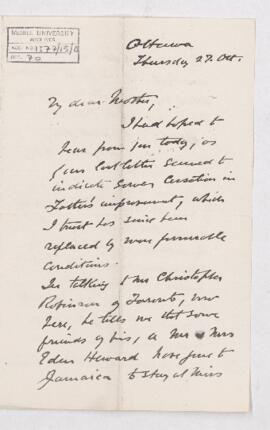 McGILL UNIVERSITY
ARCHIVES
ACC. NO. 1577/15/
REF. 70
Ottawa
Thursday 27. Oct.
My dear Mother,
I had hoped to
hear from you today, as
your last letter seemed to
indicate some cessation in
Father's improvement, which
I trust has since been
replaced by more favourable
conditions.
In talking to Mr Christopher
Robinson of Toronto, now
here, he tells me that some
friends of his, a Mr & Mrs
Eden Heward have gone to
Jamaica to stay at Miss